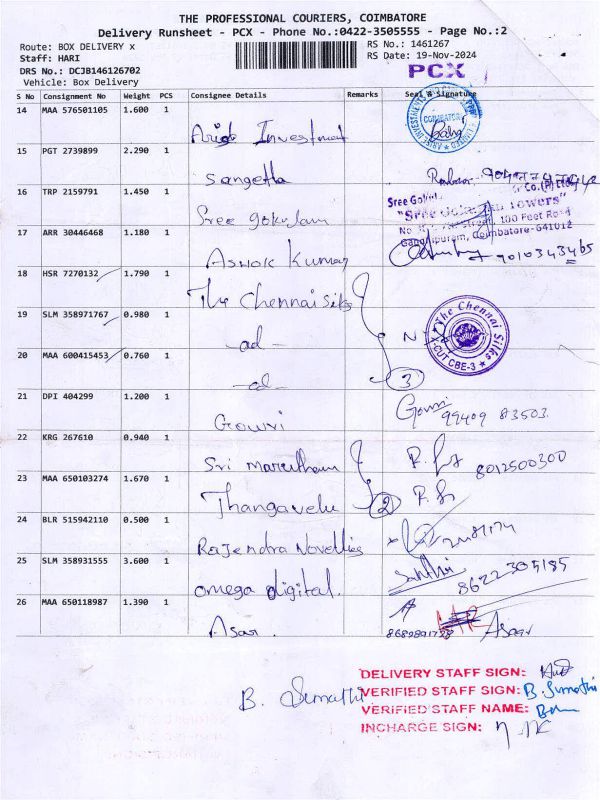 THE PROFESSIONAL COURIERS, COIMBATORE
Delivery Runsheet - PCX - Phone No.:0422-3505555 - Page No.:2
Route: BOX DELIVERY x RS No.: 1461267
Staff: HARI RS Date: 19-Nov-2024
DRS No.: DCJB146126702 PCX
Vehicle: Box Delivery
S No Consignment No Weight PCS Consignee Details Remarks Seal & Signature
14 MAA 576501105 1.600 1 Investment COIMBATORE
15 PGT 2739899 2.290 1 Sangetha
16 TRP 2159791 1.450 1 Sree gokulam
Sree
"Sree Towers"
100 Feet Road
Gandhipuram, Coimbatore-641012
17 ARR 30446468 1.180 1 Ashok Kumar 9010343465
18 HSR 7270132 1.790 1 The Chennai Silks
19 SLM 358971767 0.980 1 -ad- The Chennai Silks CUT CBE-3
20 MAA 600415453 0.760 1 -ad- 3
21 DPI 404299 1.200 1 Gowri Gowri 99409 83503
22 KRG 267610 0.940 1 Sri 8012500300
23 MAA 650103274 1.670 1 Thangavelu 2
24 BLR 515942110 0.500 1 Rajendra Novelties
25 SLM 358931555 3.600 1 omega digital. 8622305185
26 MAA 650118987 1.390 1 Asar Asar
DELIVERY STAFF SIGN:
B. Sumathi VERIFIED STAFF SIGN: B. Sumathi
VERIFIED STAFF NAME:
INCHARGE SIGN: